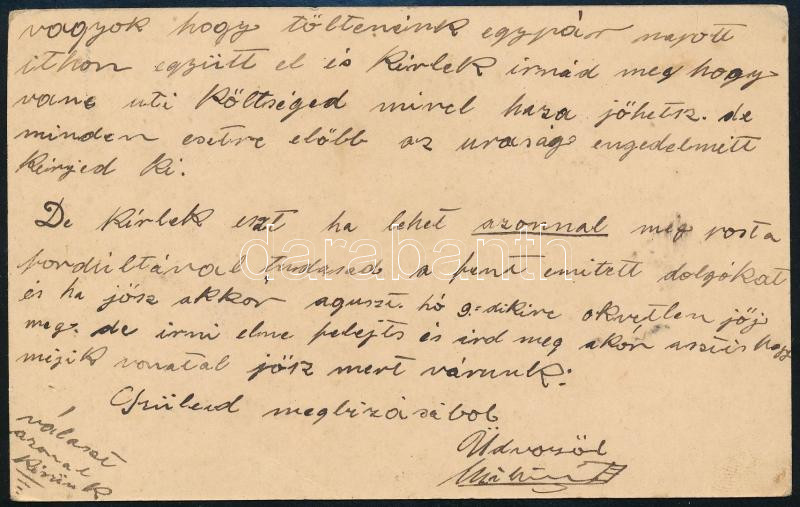 vagyok hogy töltenénk egypár napott
ithon együtt el és kérlek irnád meg hogy
vane uti költséged mivel haza jöhetsz. de
minden esetre előbb az uraság engedelmitt
kérjed ki.
De kérlek eszt ha lehet azonnal meg posta
fordultával tudasad a fent emitett dolgókat
és ha jösz akkor aguszt. hó 9-dikére okvetlen jöjj
meg. de irni elne felejts és ird meg akór asztis hogy
mejik vonatal jösz mert várunk.
Szüleid megbizásábol
Üdvozöl
választ
azonal
kérünk
darabanth